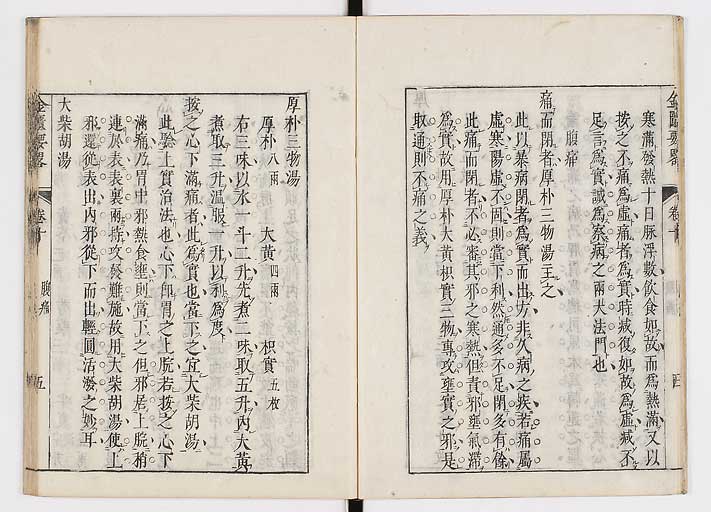 寒滿發熱十日脉浮數飲食如故而爲熱滿又以
按之不痛爲虛痛者爲實時減復如故爲虛減不
足言爲實誠爲察病之兩大法門也
腹痛
痛而閉者厚朴三物湯主之
此以暴病閉者爲實而出方非久病之疾若痛屬
虛寒陽虛不固則當下利然通多不足閉多有餘
此痛而閉者不必審其邪之寒熱但責邪壅氣滯
爲實故用厚朴大黃枳實三物專攻壅實之邪是
取通則不痛之義
金匱要畧 卷十
厚朴三物湯
厚朴八兩 大黃四兩 枳實五枚
右三味以水一斗二升先煮二味取五升内大黃
煮取三升温服一升以利爲度
按之心下滿痛者此爲實也當下之宜大柴胡湯
此騐上實治法也心下卽胃之上脘若按之心下
滿痛乃胃中邪熱食壅則當下之但邪居上脘稍
連於表表裏兩持攻發難施故用大柴胡湯使上
邪還從表出内邪從下而出輕圓活潑之妙耳
大柴胡湯
金匱要畧 卷十 腹痛 五